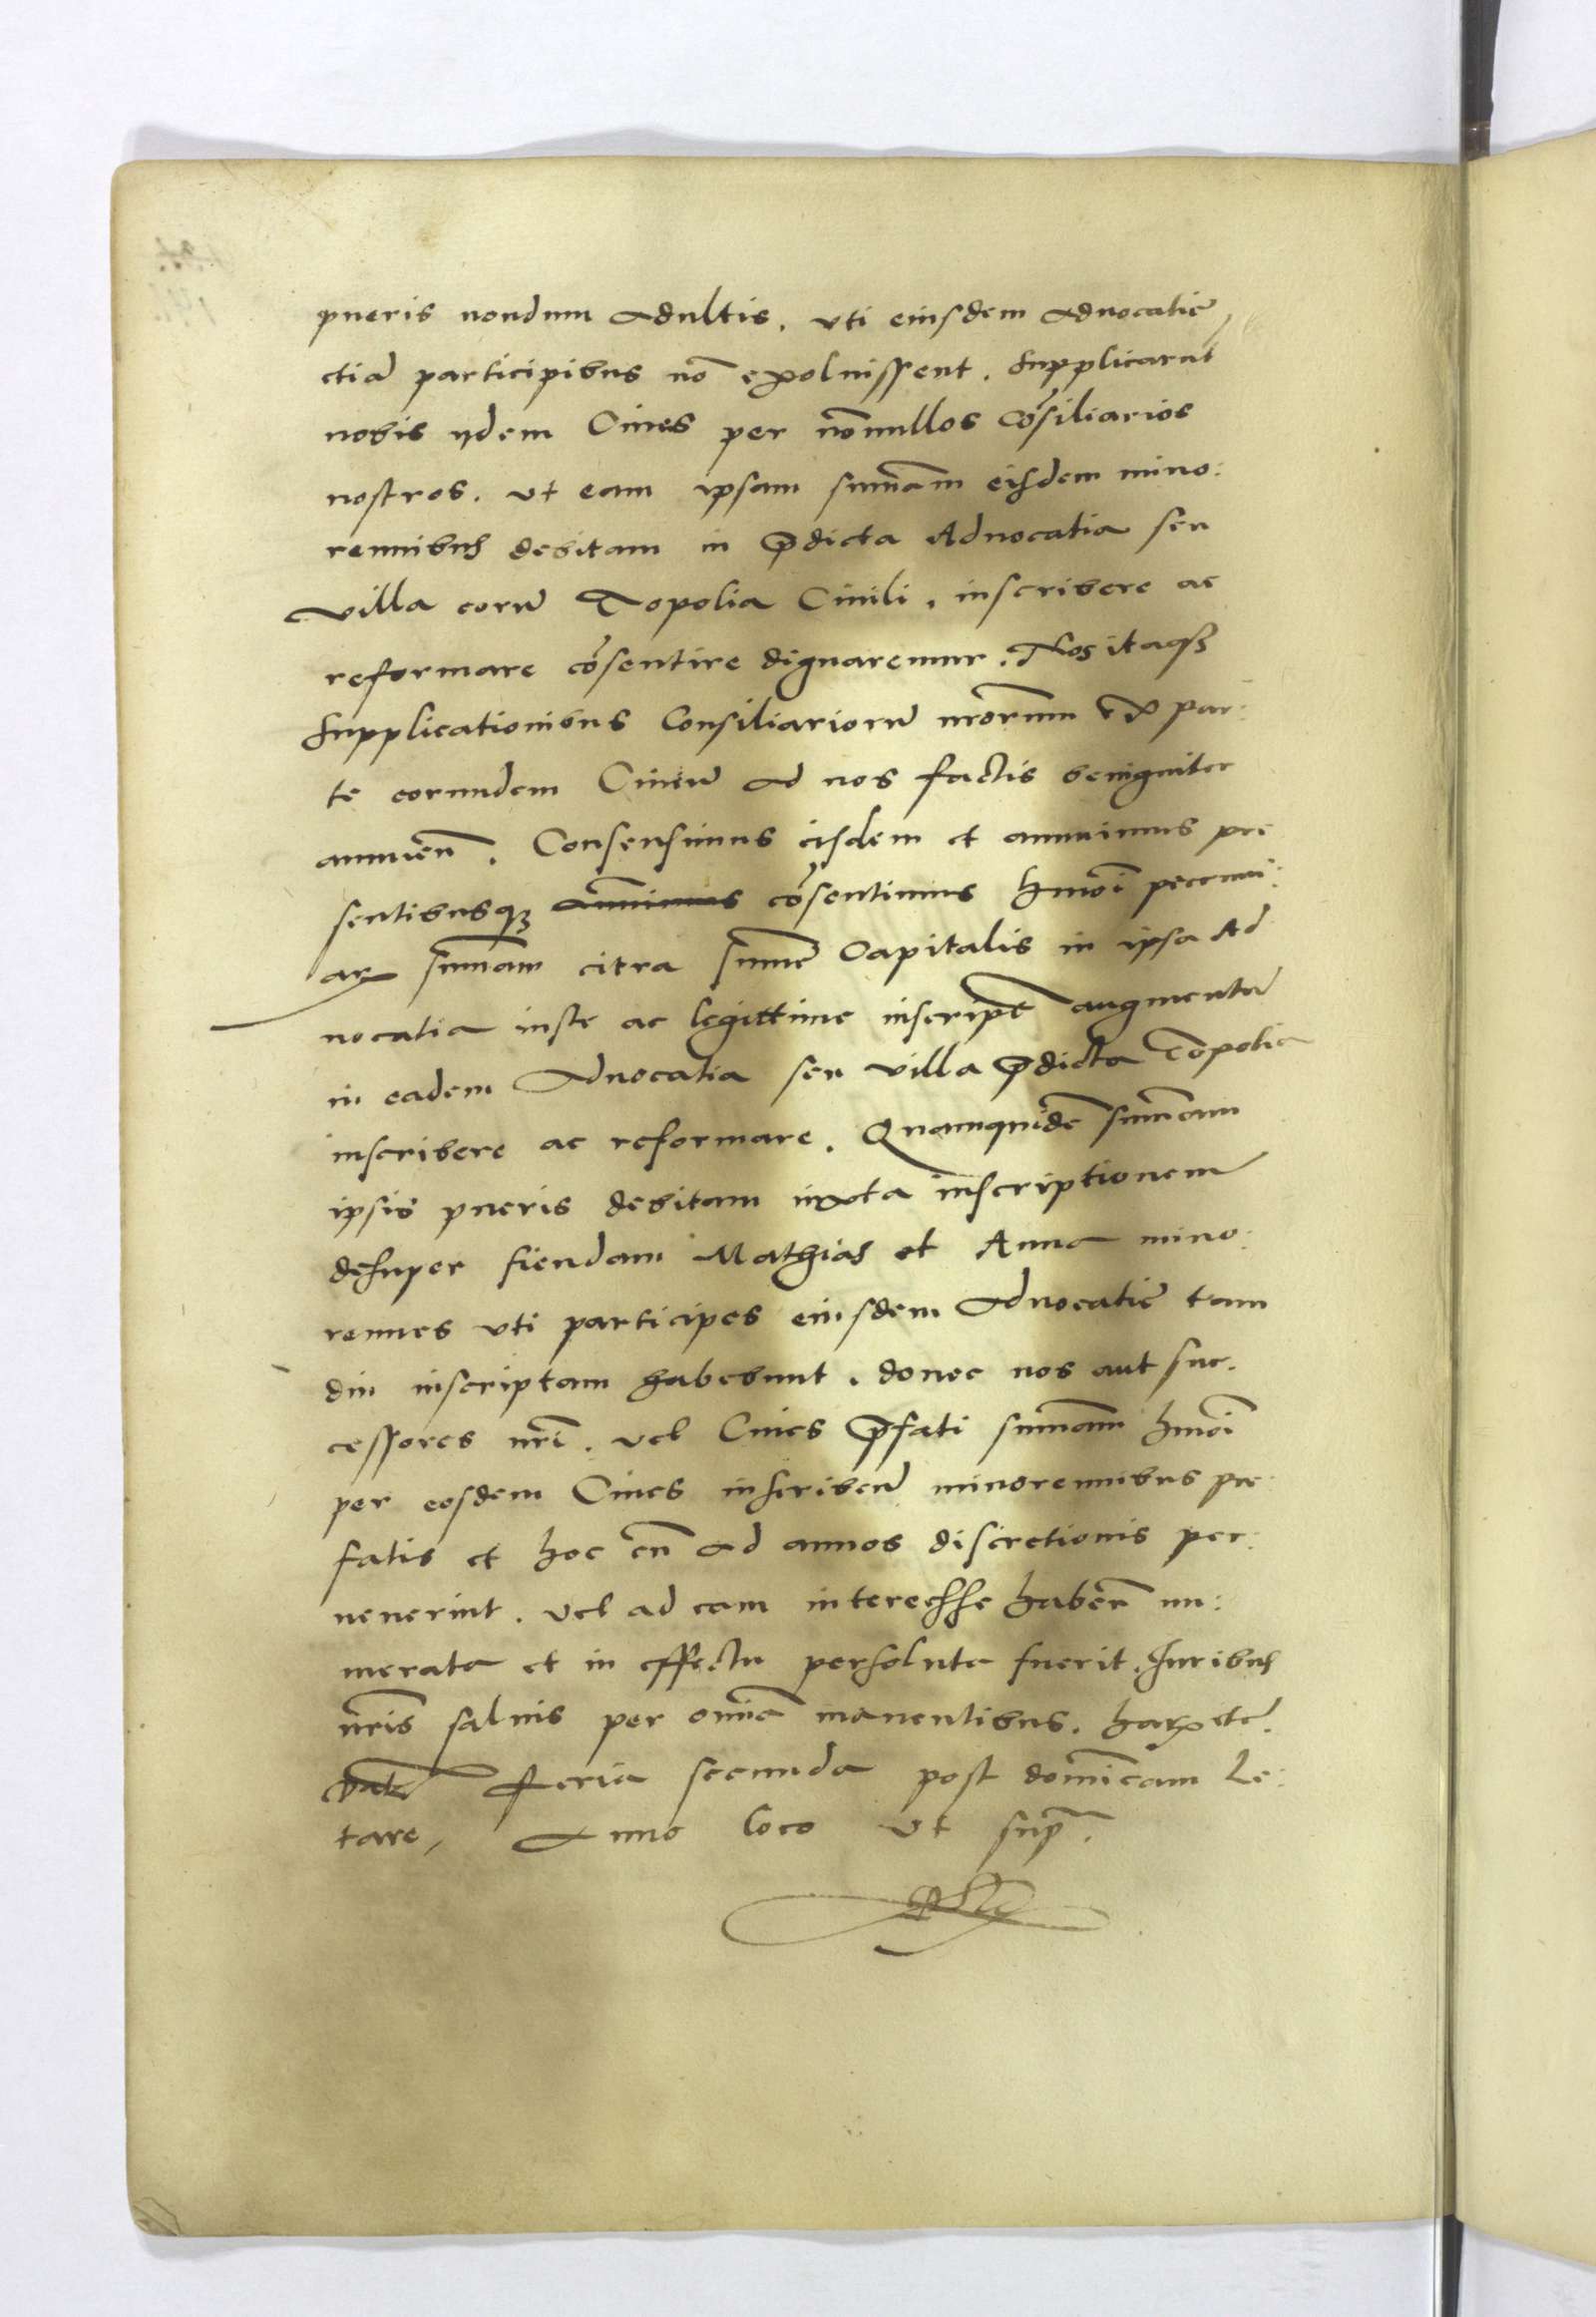 pueris nondum adultis. vti eiusdem aduocatie
etiā participibus nō exoluissent. supplicarūt
nobis ijdem Ciues per nōnullos cōsiliarios
nostros. vt eam ipsam sum̄am eisdem mino:
rennibus debitam in p̄dicta Aduocatia seu
villa eorū Topolia Ciuili. inscribere ac
reformare cōsentire dignaremur. Nos itaqꝫ
supplicationibus Consiliariorū nr̄orum ex par:
te eorundem Ciuiū ad nos factis benigniter
annuen̄. Consensimus eisdem et annuimus pre
sentibusqꝫ annuimus cōsentimus hmōi pecuni:
arꝝ sum̄am citra sum̄e Capitalis in ipsa Ad
uocatia iuste ac legittime inscript̄ augmentū
in eadem Aduocatia seu villa p̄dicta Topolia
inscribere ac reformare. Quamquidē sum̄am
ipsis pueris debitam iuxta inscriptionem
desuper fiendam Mathias et Anna mino:
rennes vti participes eiusdem Aduocatie tam
diu inscriptam habebunt. donec nos aut suc.
cessores nr̄i. vel Ciues p̄fati sum̄am hmōi
per eosdem Ciues inscribeñ minorennibus pre
fatis et hoc cū ad annos discretionis per:
uenerint. vel ad eam interesse haben̄ nu:
merata et in effectu persoluta fuerit. Iuribus
nr̄is saluis per om̄ia manentibus. harꝝ etc̄.
Dat̄ feria secunda post domīcam Le:
tare, Anno loco vt supᵃ.